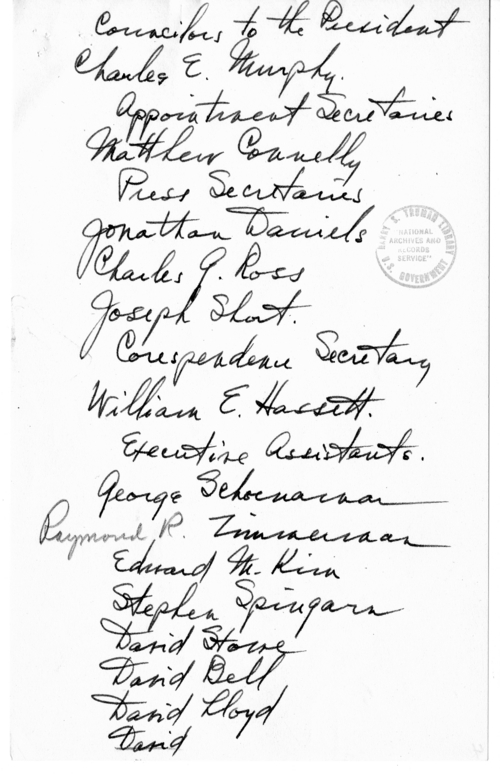 Councilors to the President
Charles E. Murphy.
Appointment Secretaries
Matthew Connelly
Press Secretaries
Jonathan Daniels
Charles G. Ross
Joseph Short.
Corespondence Secretary
William E. Hassett.
Executive Assistants.
George Schoenaman
Raymond R. Zimmerman
Edward M. Kirn
Stephen Spingarn
David Stowe
David Bell
David Lloyd
David
HARRY S. TRUMAN LIBRARY
"NATIONAL
ARCHIVES AND
RECORDS
SERVICE"
U.S. GOVERNMENT